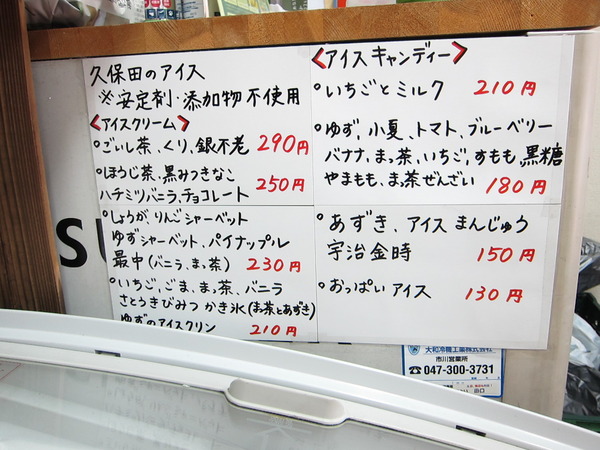 久保田のアイス
※安定剤・添加物不使用
<アイスクリーム>
ごいし茶、くり、銀不老 290円
ほうじ茶、黒みつきなこ
ハチミツバニラ、チョコレート 250円
しょうが、りんごシャーベット
ゆずシャーベット、パイナップル
最中(バニラ、まっ茶) 230円
いちご、ごま、まっ茶、バニラ
さとうきびみつ かき氷(まっ茶とあずき)
ゆずのアイスクリン 210円
<アイスキャンディー>
いちごとミルク 210円
ゆず、小夏、トマト、ブルーベリー
バナナ、まっ茶、いちご、すもも、黒糖
やまもも、まっ茶ぜんざい 180円
あずき、アイスまんじゅう
宇治金時 150円
おっぱいアイス 130円
SU
大和冷機工業株式会社
市川営業所
047-300-3731